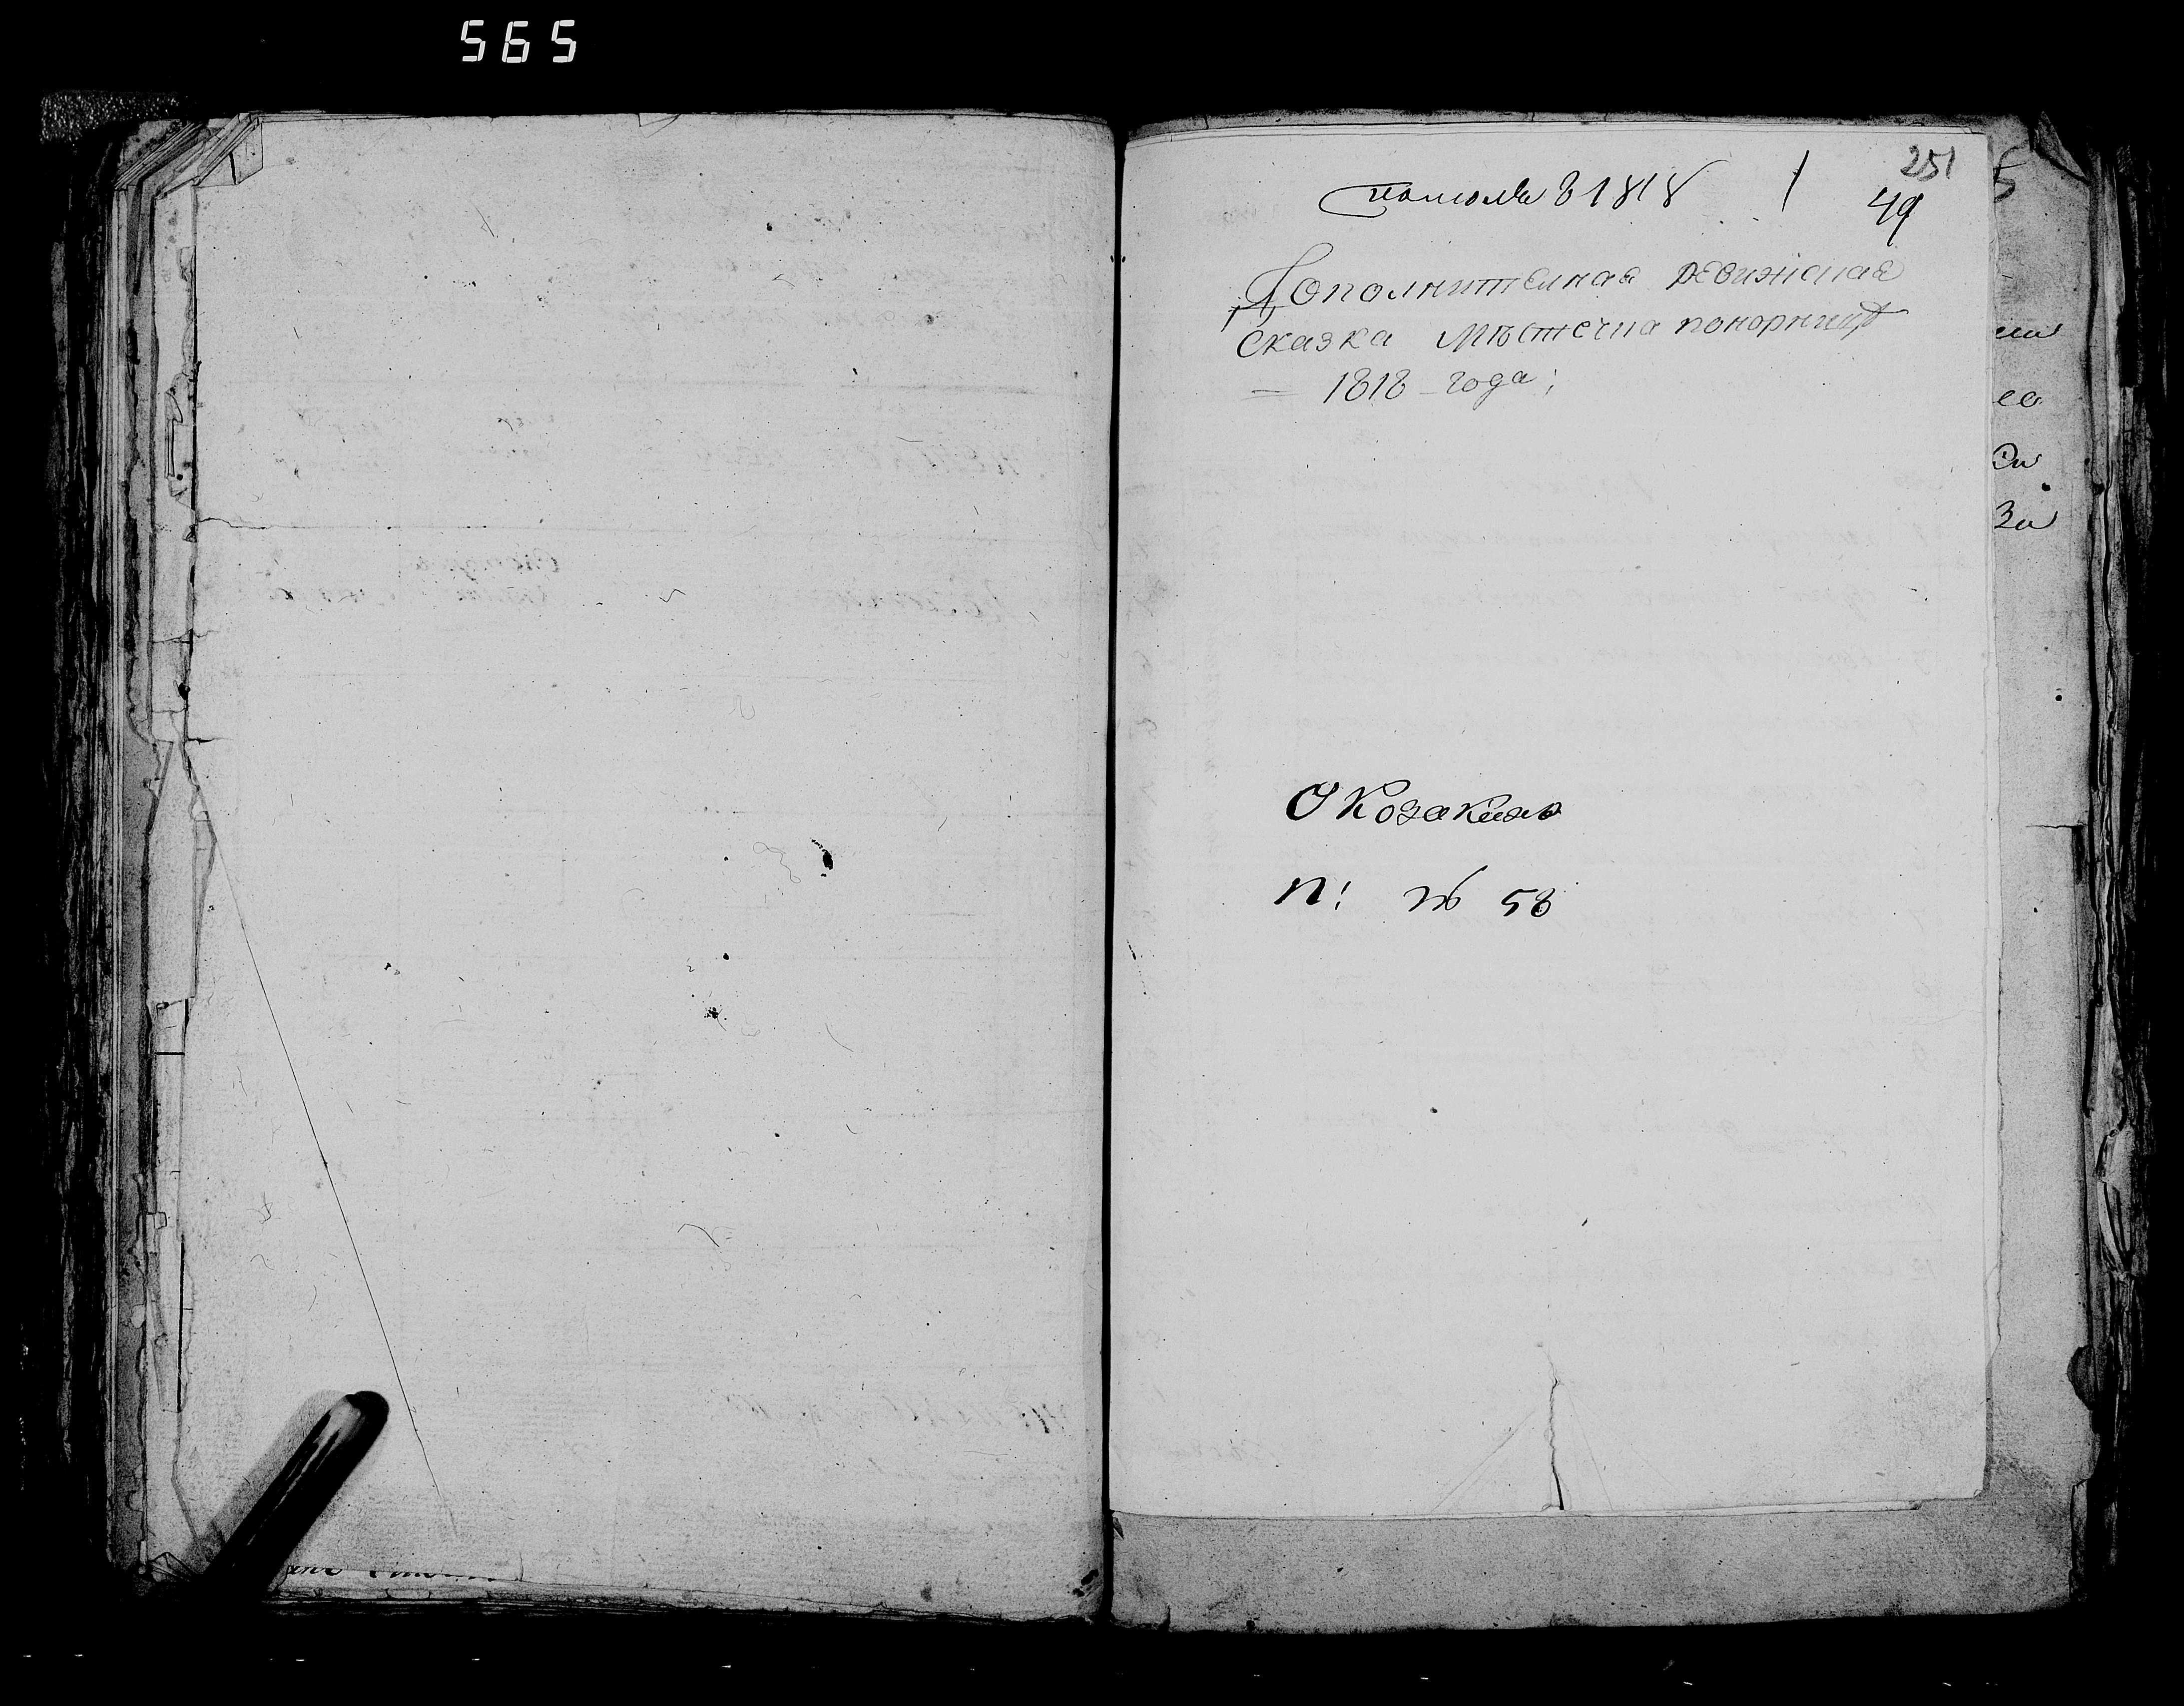 565
251
1818
49
Дополнителная ревижская
сказка мѣстечка понорницѣ
1818 года;
О Козакахъ
п: № 58